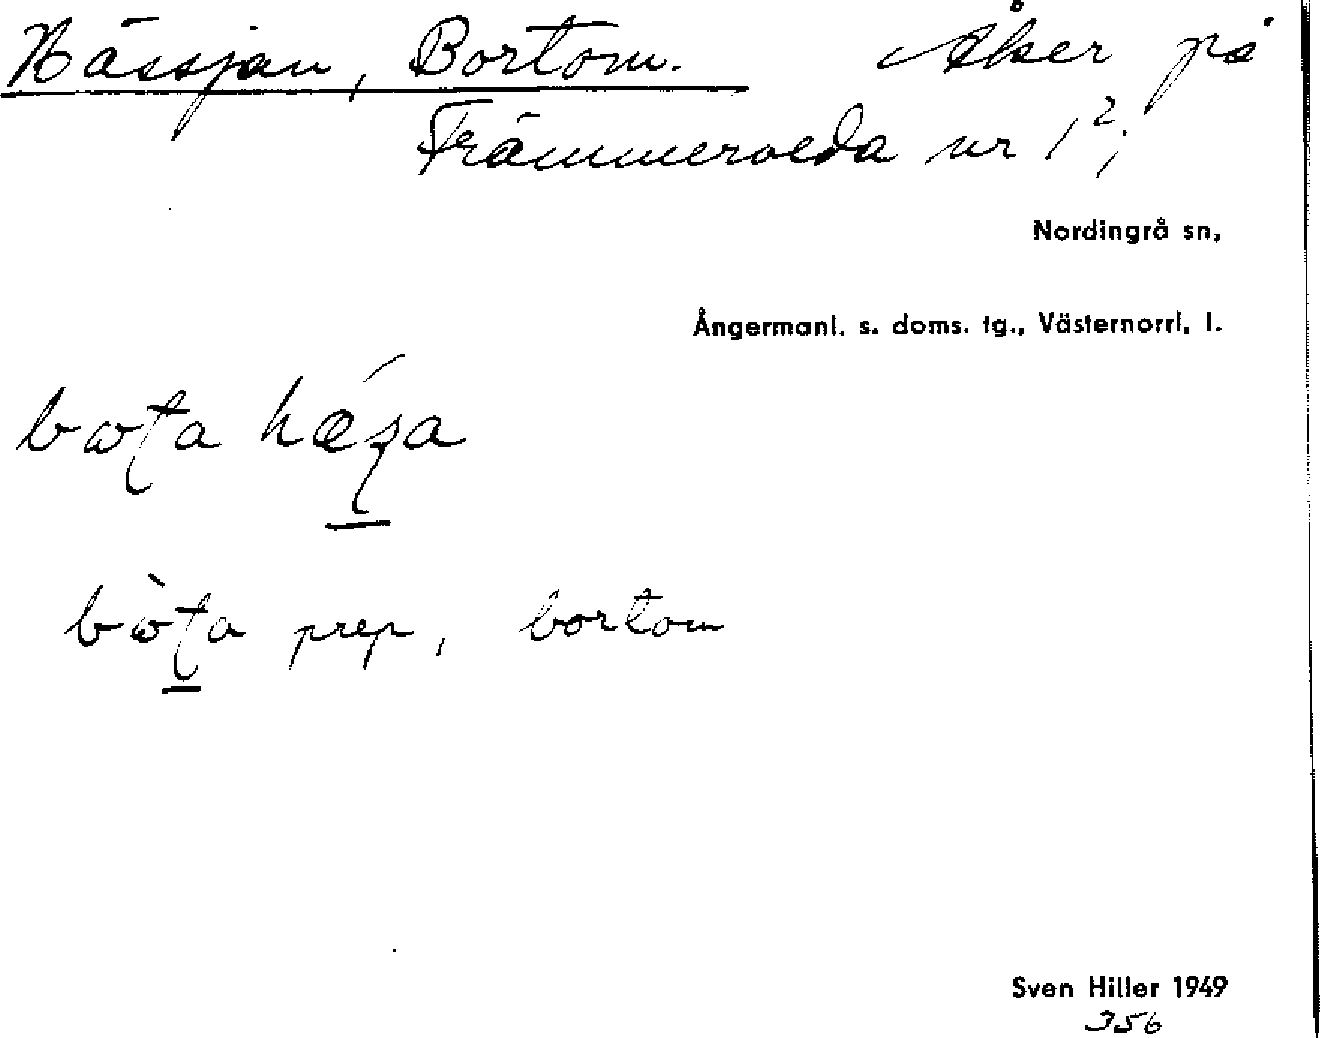 Hässjan, Bortom. Åker på
Främmerveda nr 1²;
Nordingrå sn,
Ångermanl. s. doms. tg., Västernorrl. l.
prep, bortom
Sven Hiller 1949
356